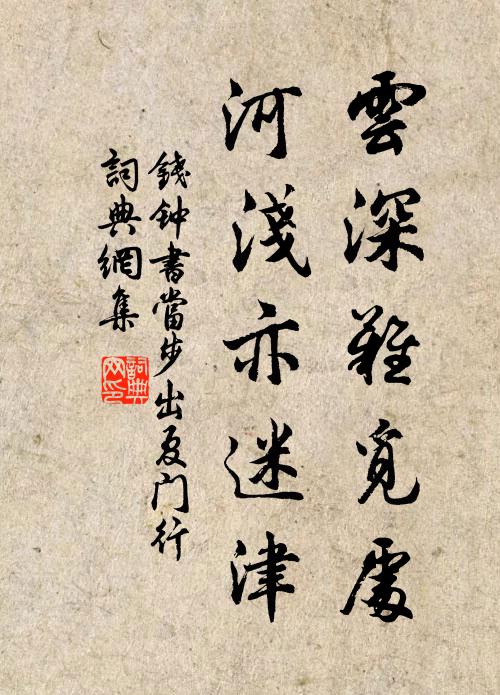 雲深難覓處
河淺亦迷津
錢钟書當步出夏门行
詞典網集
詞典
网印